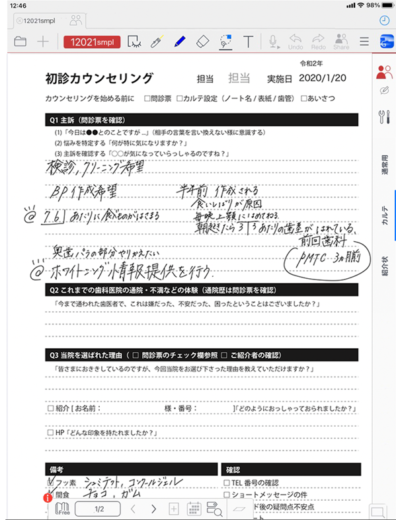 12:46
98%
12021smpl
12021smpl
Undo
Redo
Share
令和2年
初診カウンセリング 担当 担当 実施日 2020/1/20
カウンセリングを始める前に □問診票 □カルテ設定（ノート名／表紙／歯管）□あいさつ
Q1 主訴（問診票を確認）
(1)「今日は●●とのことですが…」（相手の言葉を言い換えない様に意識する）
(2) 悩みを特定する「何が特に気になりますか？」
(3) 主訴を確認する「○○が気になっていらっしゃるのですね？」
検診, クリーニング希望
BP作成希望 半年前 作成される
食いしばりが原因
＠ 76 あたりに食べものがはさまる 毎晩上顎にはめてねる
朝起きたら 3 3 あたりの歯茎がはれている。
前回歯科
PMTC 3ヵ月前
奥歯パラの部分やりかえたい
＠ ホワイトニング情報提供を行う.
Q2 これまでの歯科医院の通院・不満などの体験（通院歴は問診票を確認）
「今まで通われた歯医者で、これは嫌だった、不安だった、困ったということはございましたか？」
Q3 当院を選ばれた理由（ □ 問診票のチェック欄参照 □ ご紹介者の確認）
「皆さまにおききしているのですが、今回当院をお選び下さった理由を教えていただけますか？」
□ 紹介 [ お名前： 様・番号： ]「どのようにおっしゃっておられましたか？」
□ HP「どんな印象を持たれましたか？」
備考 確認
フッ素 ジェミテクト, コンクールジェル □ TEL 番号の確認
間食 チョコ, ガム □ ショートメッセージの件
1/2
ド後の疑問点不安点
通常用
カルテ
紹介状